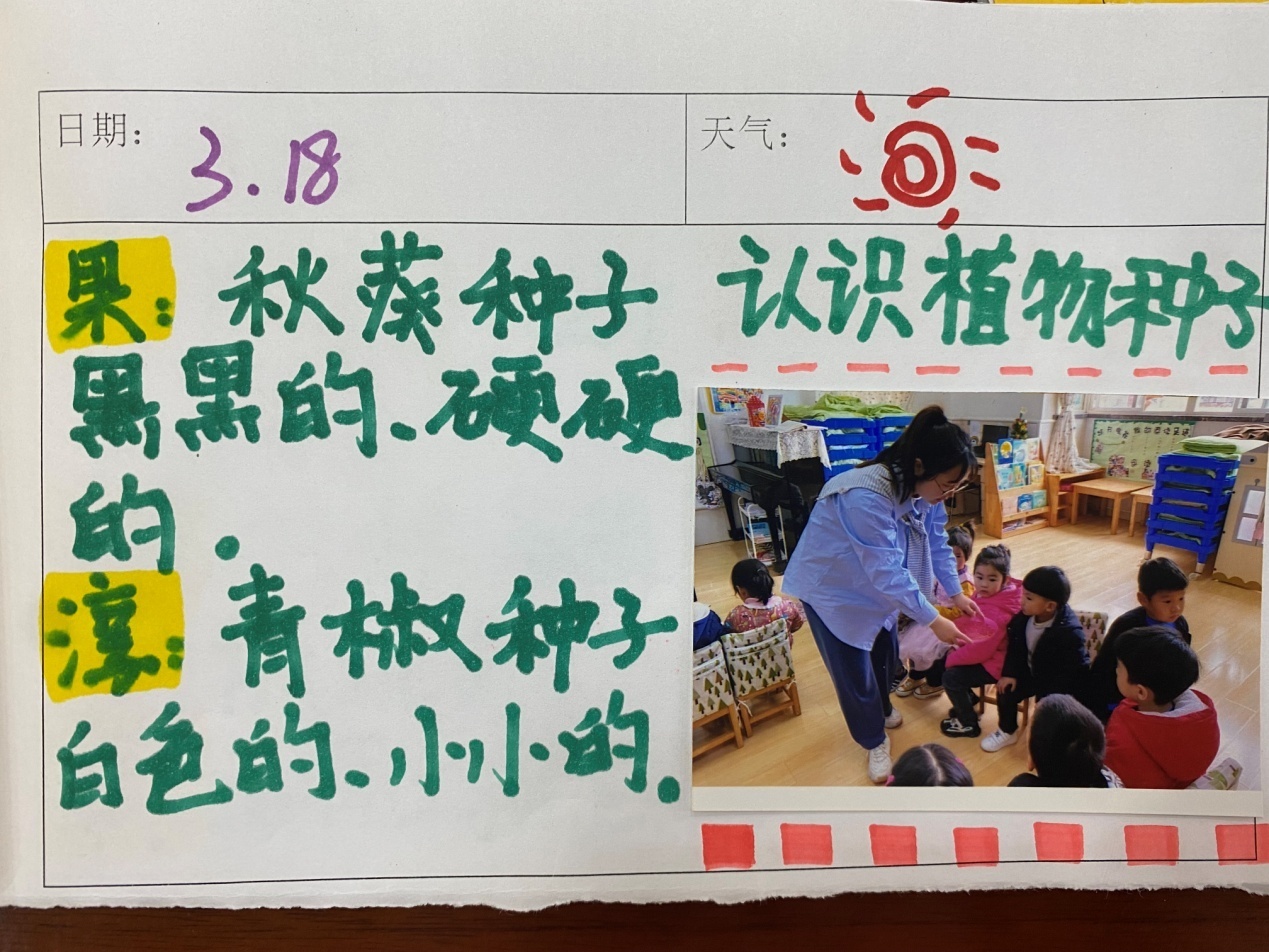 日期: 3.18
天气:
果: 秋葵种子
黑黑的、硬硬
的.
淳: 青椒种子
白色的、小小的.
认识植物种子